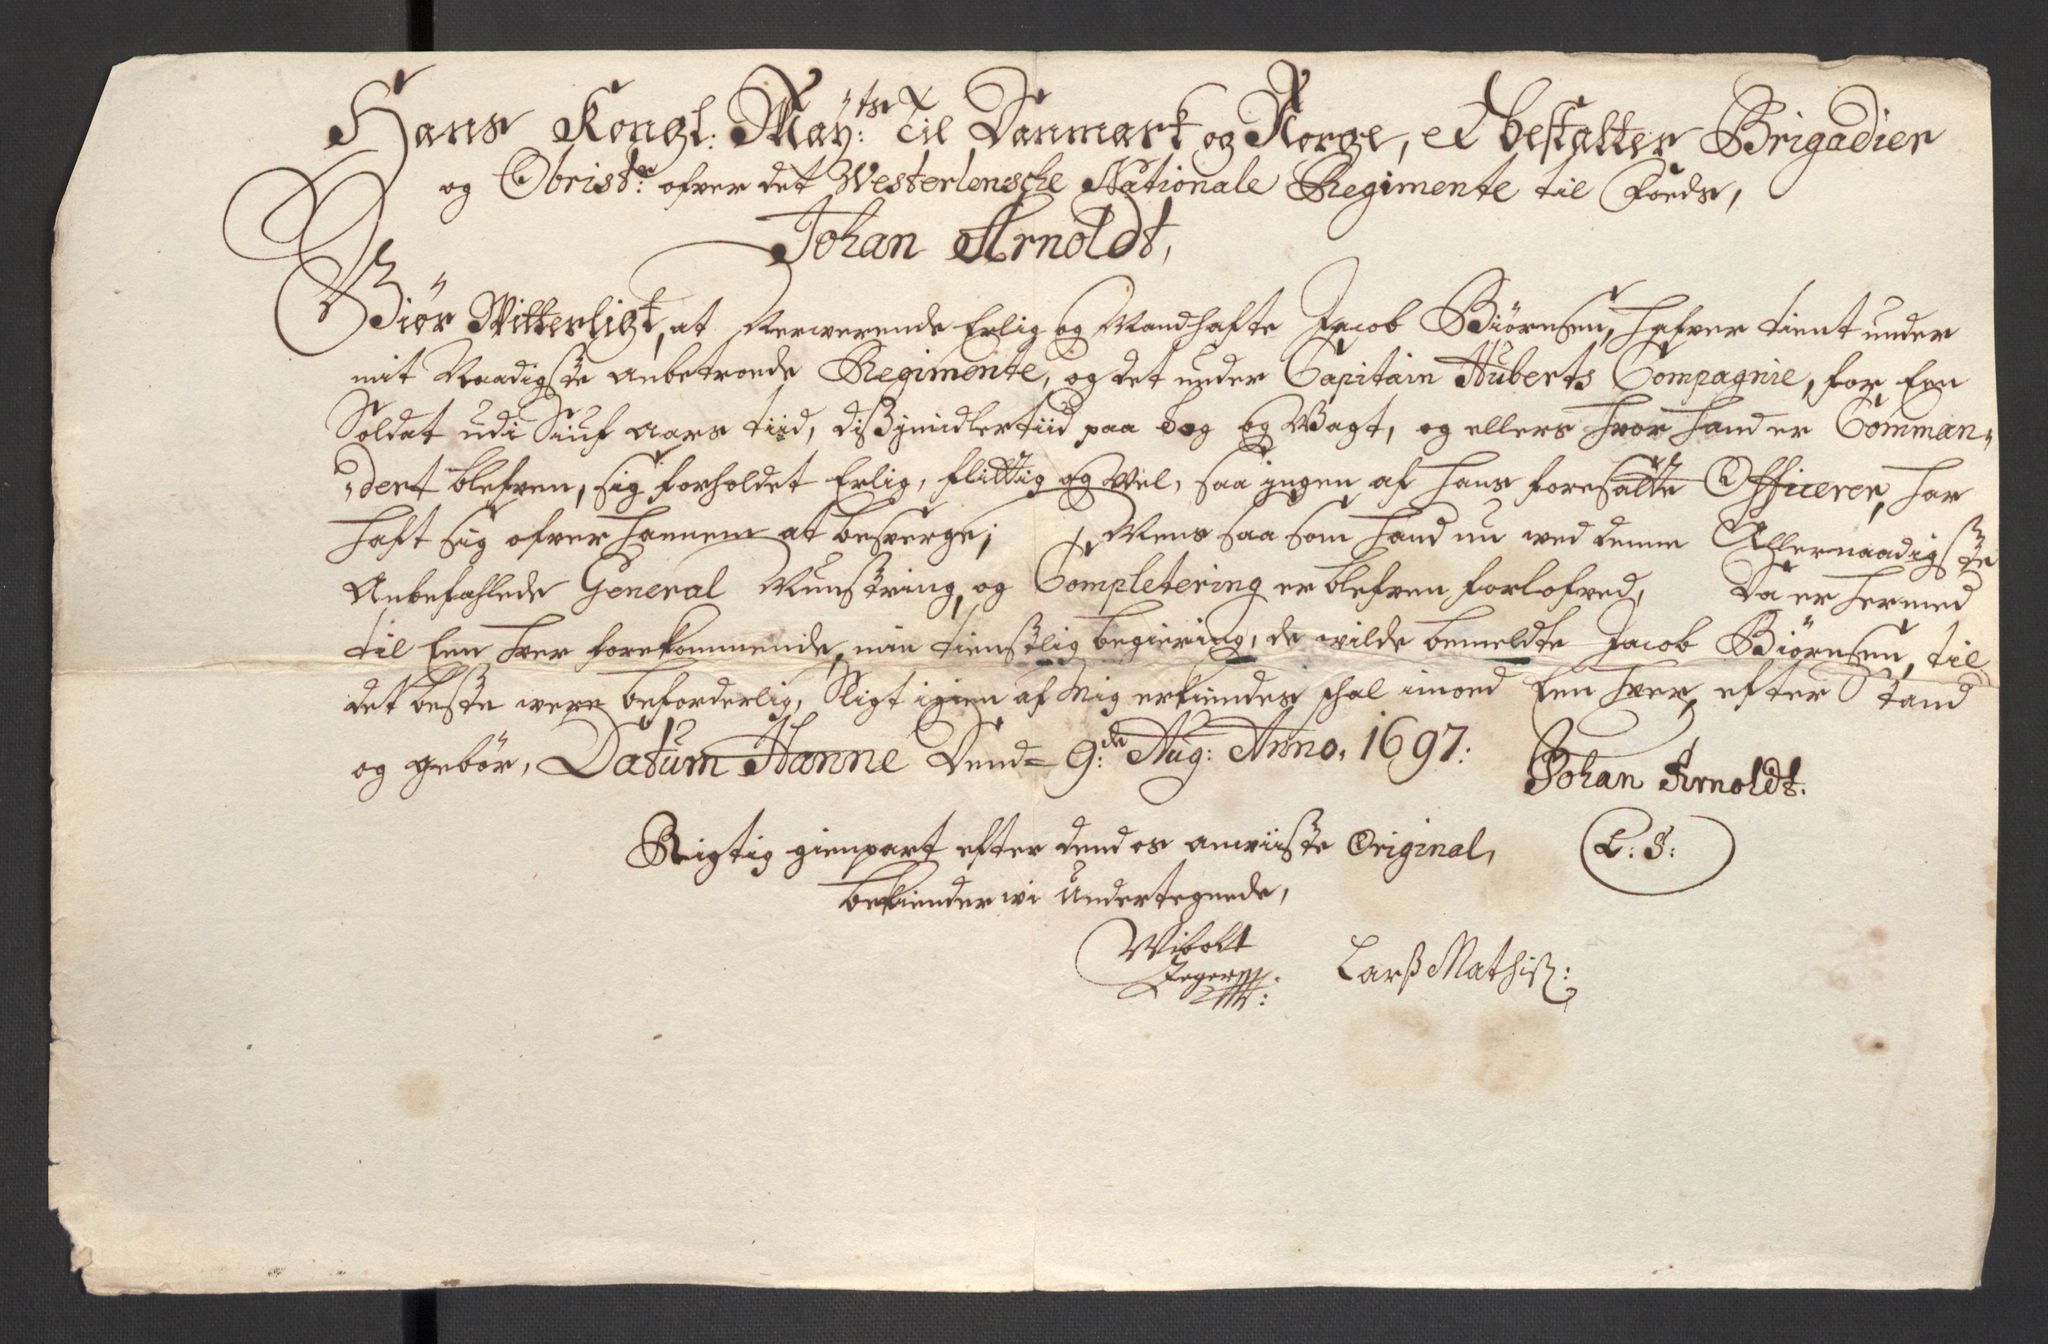 Hans Kongl: May:ts Til Danmark og Norge, etc bestalter Brigadier
og Obrister ofver det Westerlensche Nationale Regimente til Foeds,
Johan Arnoldt,
Giör Witterligt, at Nerwerende Erlig og Mandhafte Jacob Biörnsen, hafver tient under
mit Naadigste anbetroede Regimente, og det under Capitain Huberts Compagnie, for Een
Soldat udi Siuf aars tiid, dißimidlertiid paa tog og Wagt, og ellers hvor hand er Comman„
„dert blefven, sig forholdet Erlig, flittig og Wel, saa ingen af hans foresatte Officerer, har
haft sig ofver hannem at besverge; Mens saa som hand nu wed denne Allernaadigste
Anbefahlede General Munstring, og Completering er blefven forlofved, Da er hermed
til Een hver forekommende, min tienstlig begiering, de wilde bemeldte Jacob Biörnsen, til
det beste were beforderlig, Sligt igien af Mig erkiendes schal imod Een hver, efter Stand
og gebör, Datum Hanne Dend 9:de Aug: Anno. 1697:
Johan Arnoldt.
Rigtig gienpart efter dend os anwiiste Original,
L: S:
bekiender wi Undertegnede,
Wibolt
Zegers
Larß Mathiß: